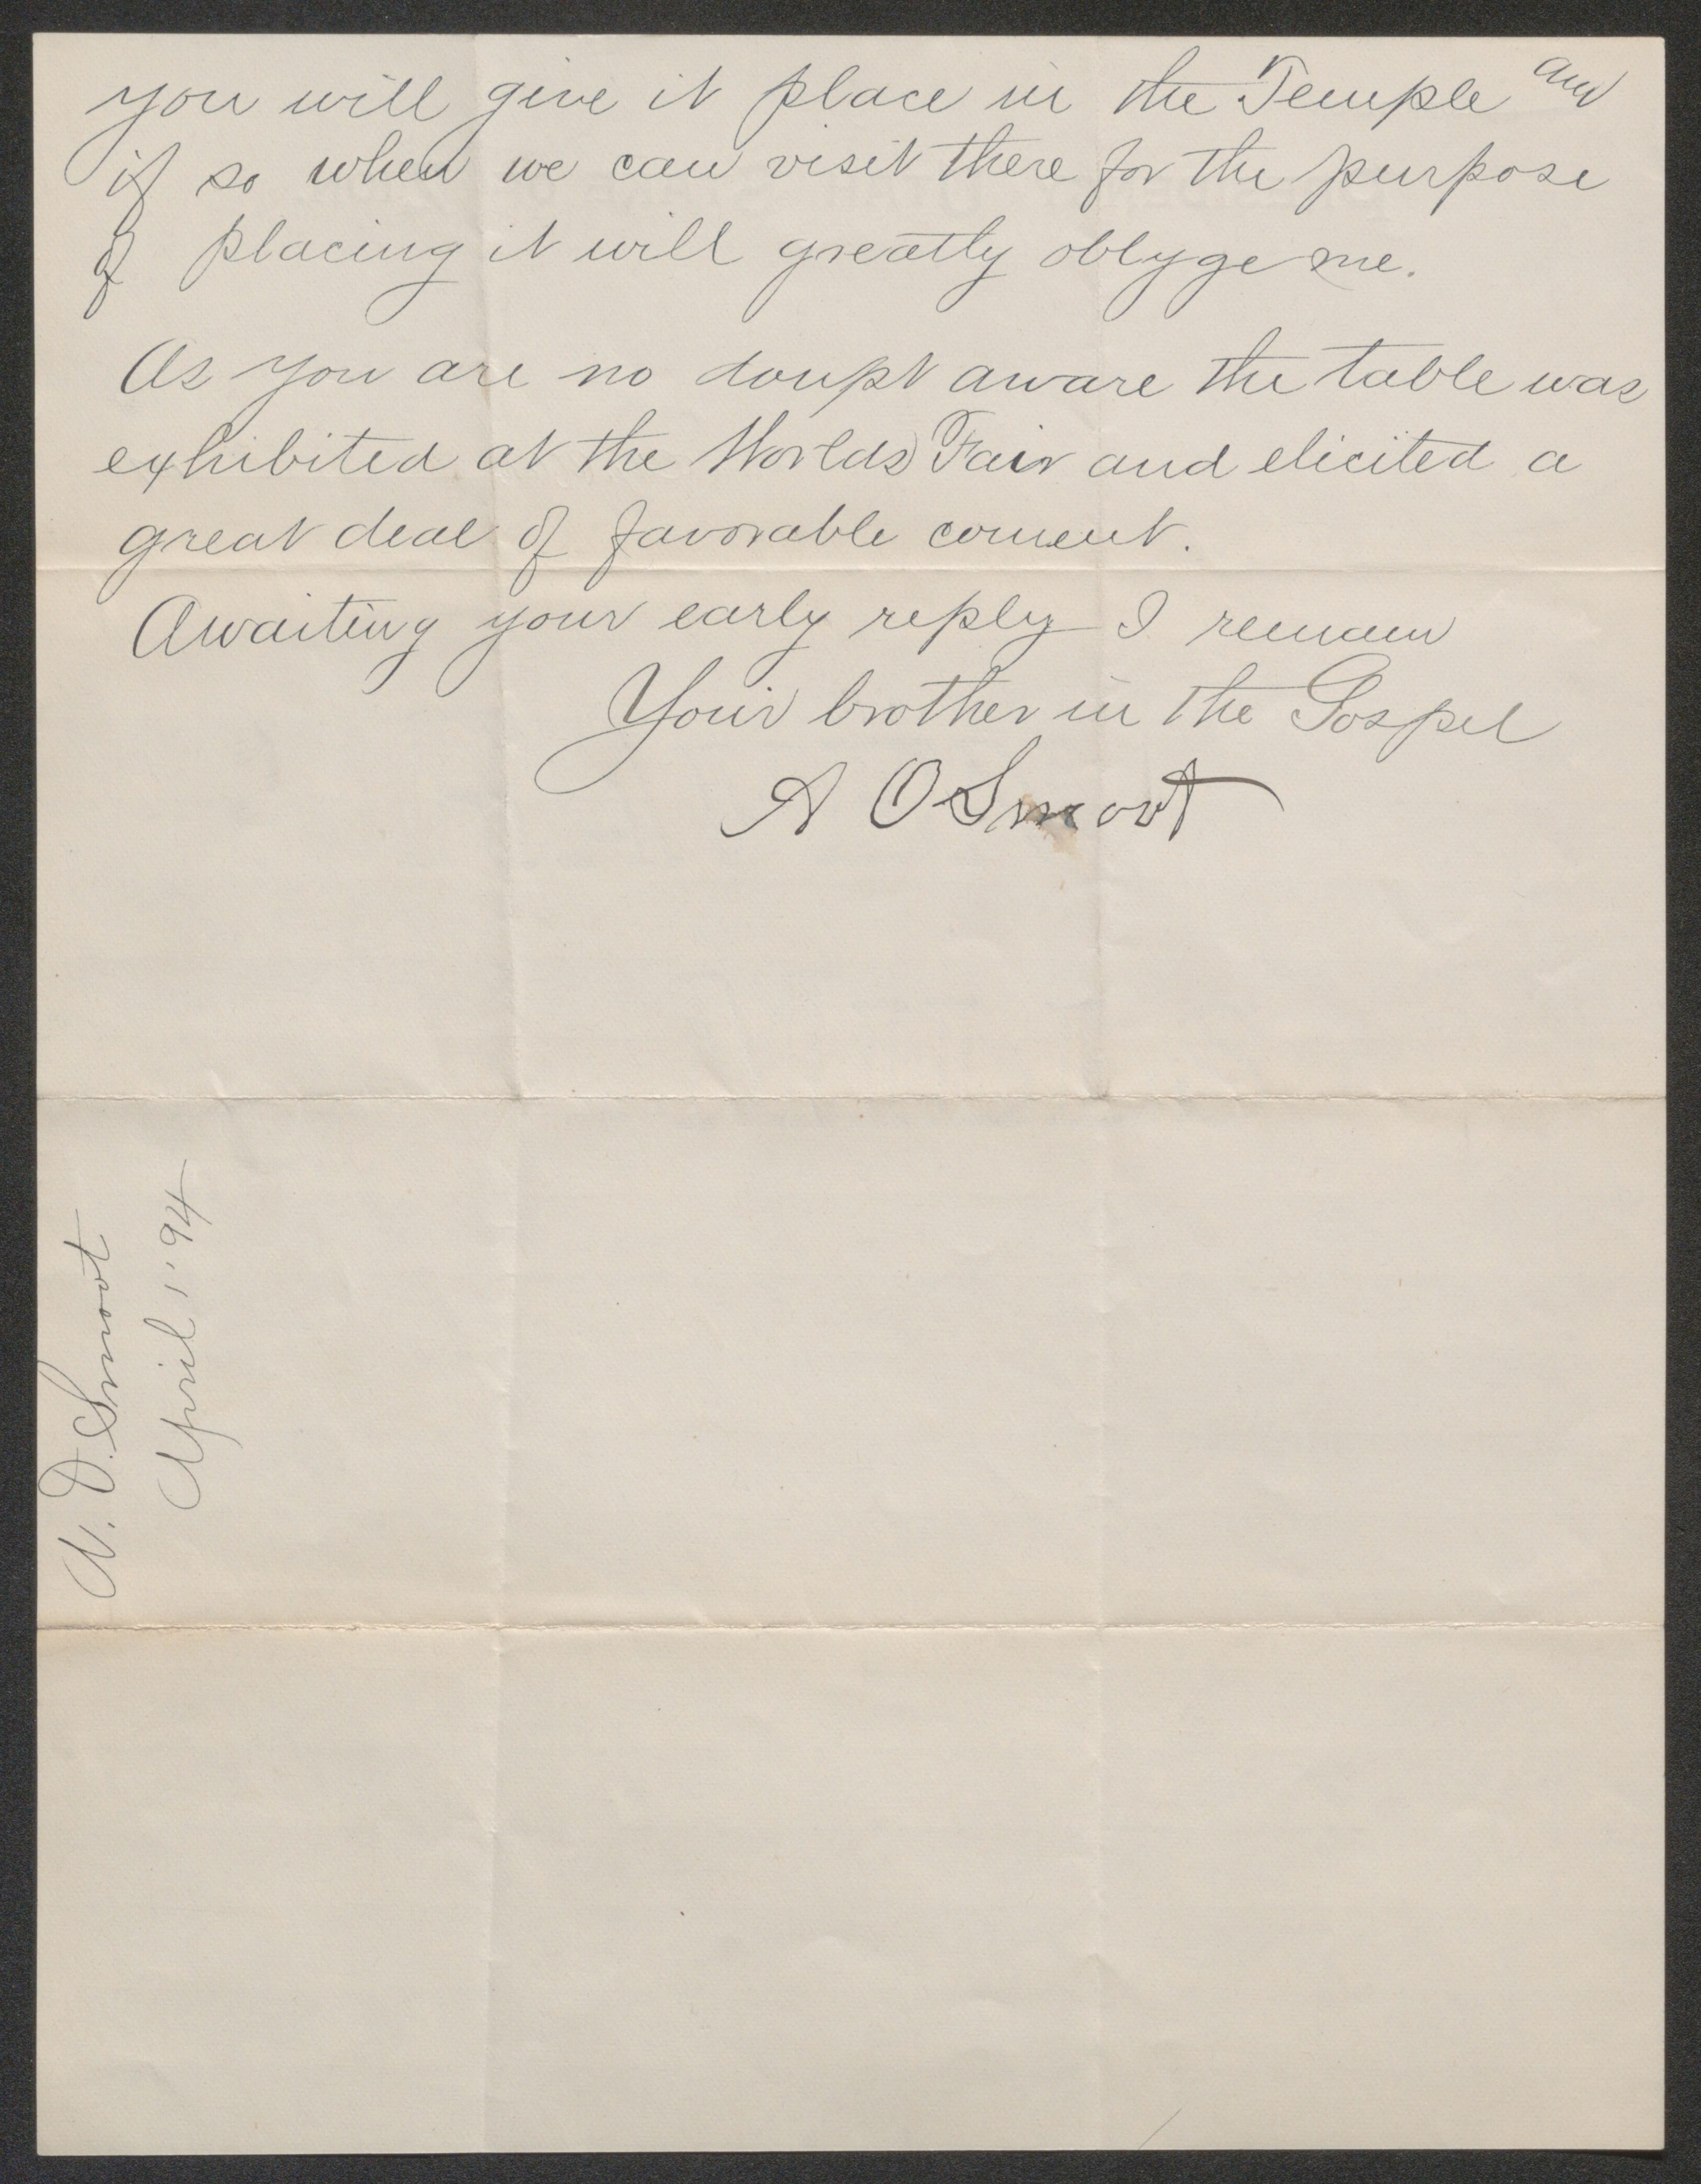 you will give it place in the Temple and
if so when we can visit there for the purpose
of placing it will greatly oblyge me.
As you are no doupt aware the table was
exhibited at the Worlds Fair and elicited a
great deal of favorable coment.
Awaiting your early reply I remain
Your brother in the Gospel
A O Smoot
A. O. Smoot
April 1 '94